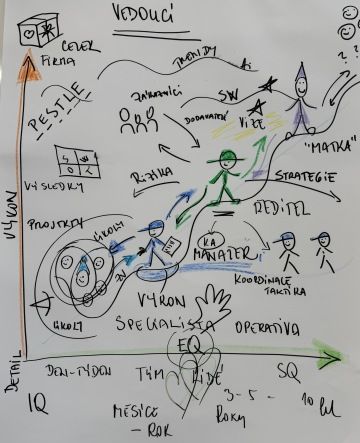 VEDOUCÍ
CELEK
FIRMA
TRENDY
AI
PESTLE
ZÁKAZNÍCI
SW
DODAVATEL
VIZE
? ?
"MATKA"
S O
VÝSLEDKY
RIZIKA
STRATEGIE
ŘEDITEL
PROJEKTY
ÚKOLY
KA
MANAŽER
KOORDINACE
TAKTIKA
VÝKON
ÚKOLY
VÝKON
SPECIALISTA
OPERATIVA
EQ
DETAIL
DEN-TÝDEN
TÝM
LIDÉ
SQ
IQ
MĚSÍCE
- ROK
3-5-
ROKY
10 let